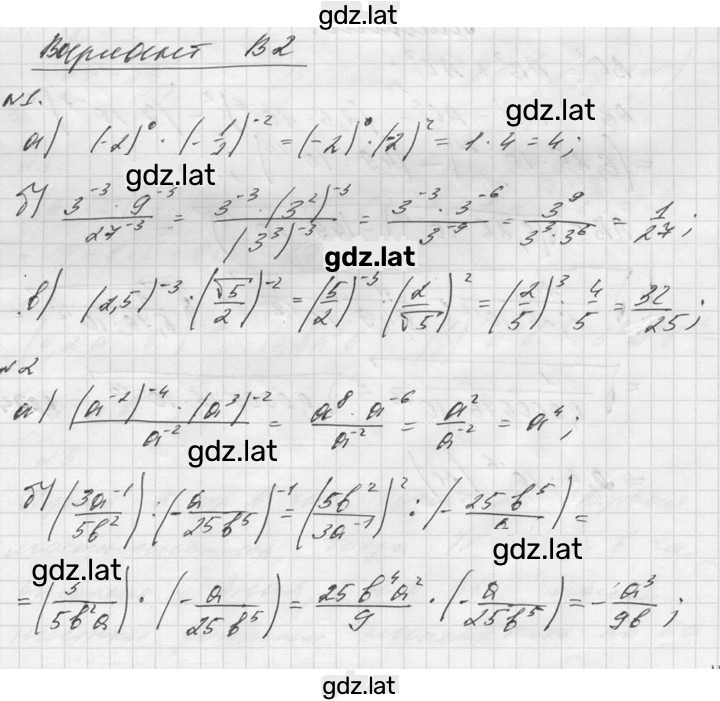 gdz.lat
Вариант В2
№1.
gdz.lat
а) (-2)⁰ · (-1/2)⁻² = (-2)⁰ · (-2)² = 1 · 4 = 4;
gdz.lat
б) (3⁻³ · 9⁻³)/(27⁻³) = (3⁻³ · (3²)⁻³)/((3³)⁻³) = (3⁻³ · 3⁻⁶)/(3⁻⁹) = 3⁹/(3³ · 3⁶) = 1/27;
gdz.lat
в) (2,5)⁻³ · (√5/2)⁻² = (5/2)⁻³ (2/√5)² = (2/5)³ : 4/5 = 32/25;
№2
а) ((a⁻²)⁻⁴ · (a³)⁻²)/(a⁻²) = (a⁸ · a⁻⁶)/(a⁻²) = a²/a⁻² = a⁴;
gdz.lat
б) (3a⁻¹/5b²) : (-a/25b⁵)⁻¹ = (5b²/3a⁻¹)² : (-25b⁵/a) =
gdz.lat
gdz.lat
= (3/5b²a) · (-a/25b⁵) = 25b⁴a²/9 · (-a/25b⁵) = -a³/9b;
gdz.lat